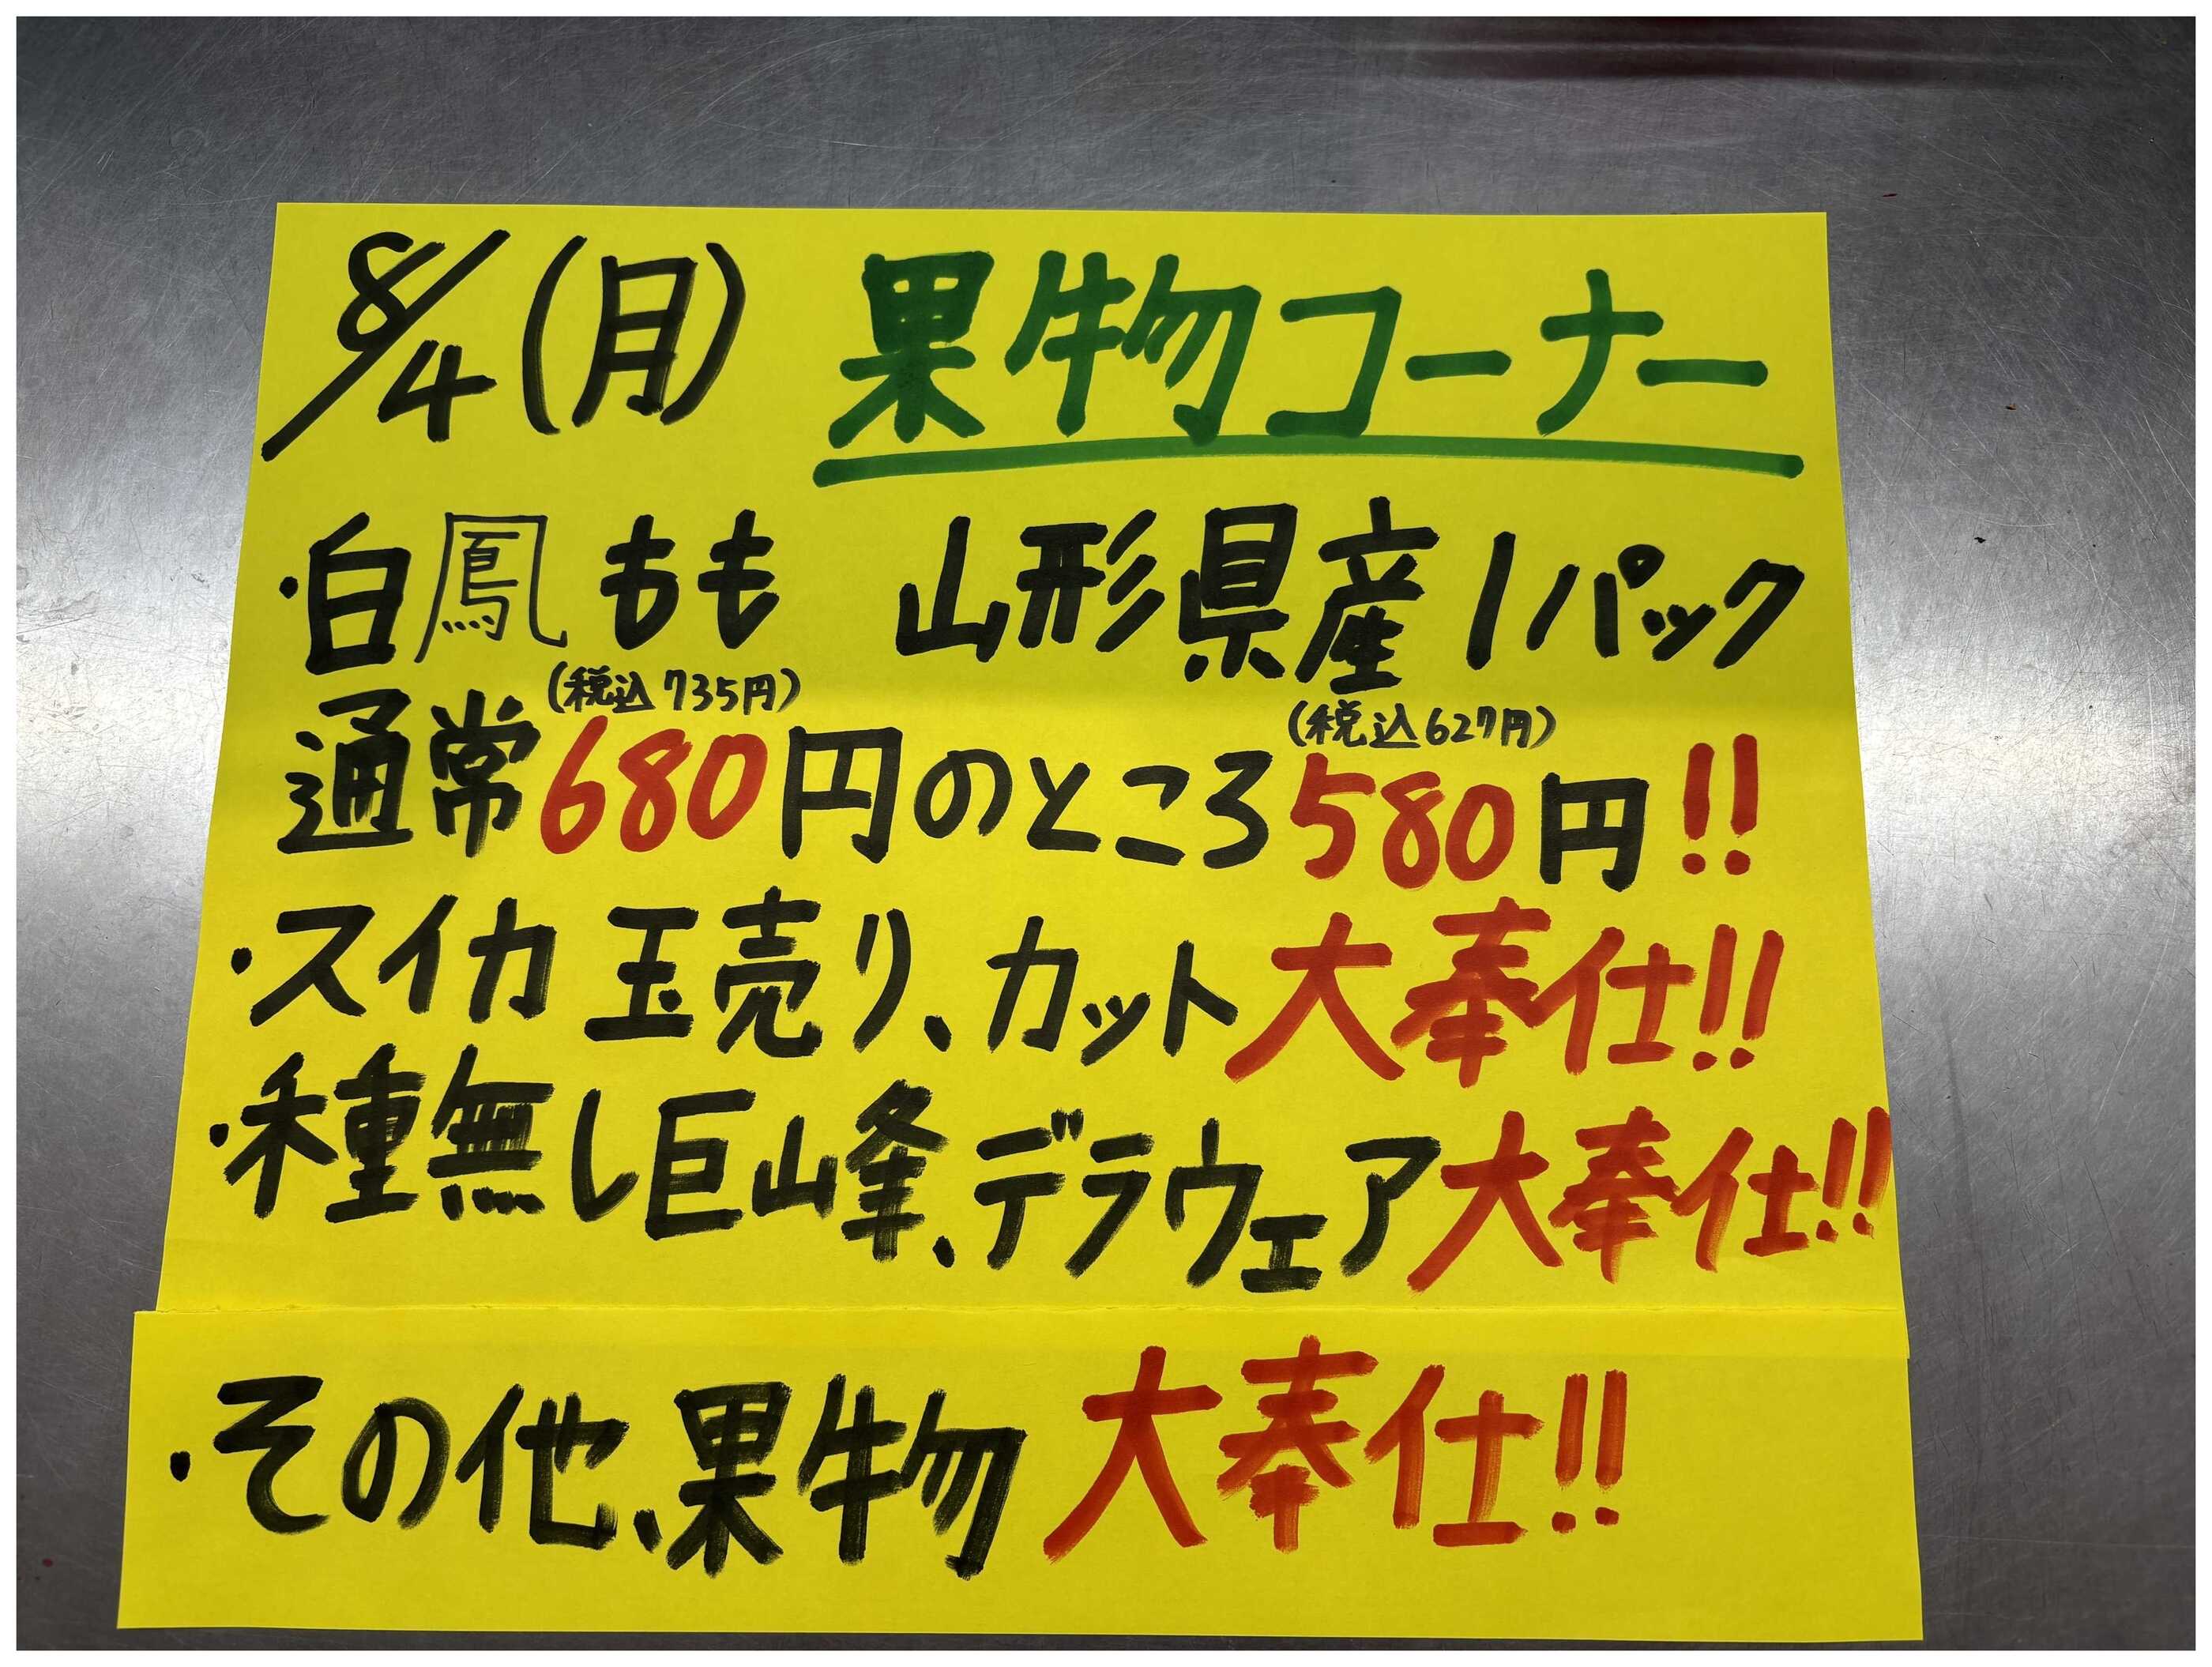 8/4(月) 果物コーナー
・白鳳もも 山形県産 1パック
(税込735円) (税込627円)
通常680円のところ580円!!
・スイカ 玉売り、カット大奉仕!!
・種無し巨峰、デラウェア大奉仕!!
・その他、果物 大奉仕!!